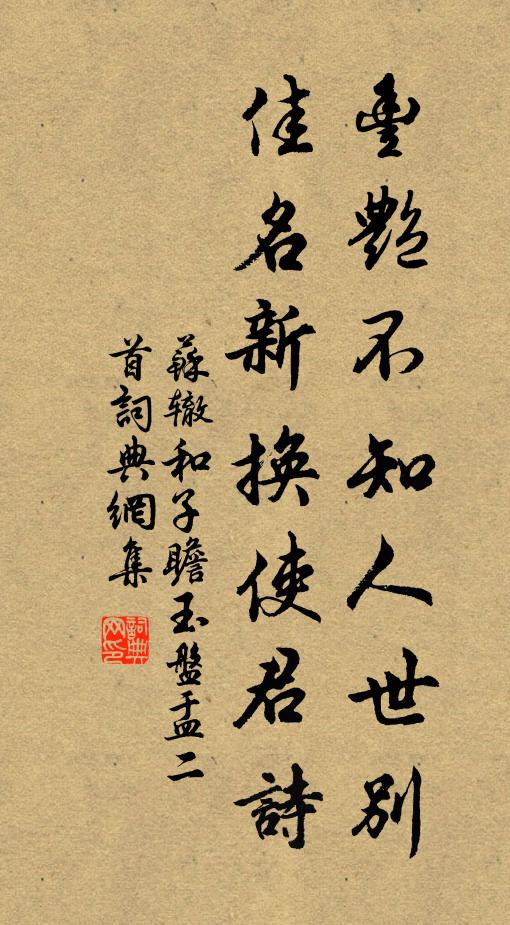 豐艷不知人世別
佳名新換使君詩
蘇辙和子瞻玉盤盂二
首詞典網集
詞典
网印